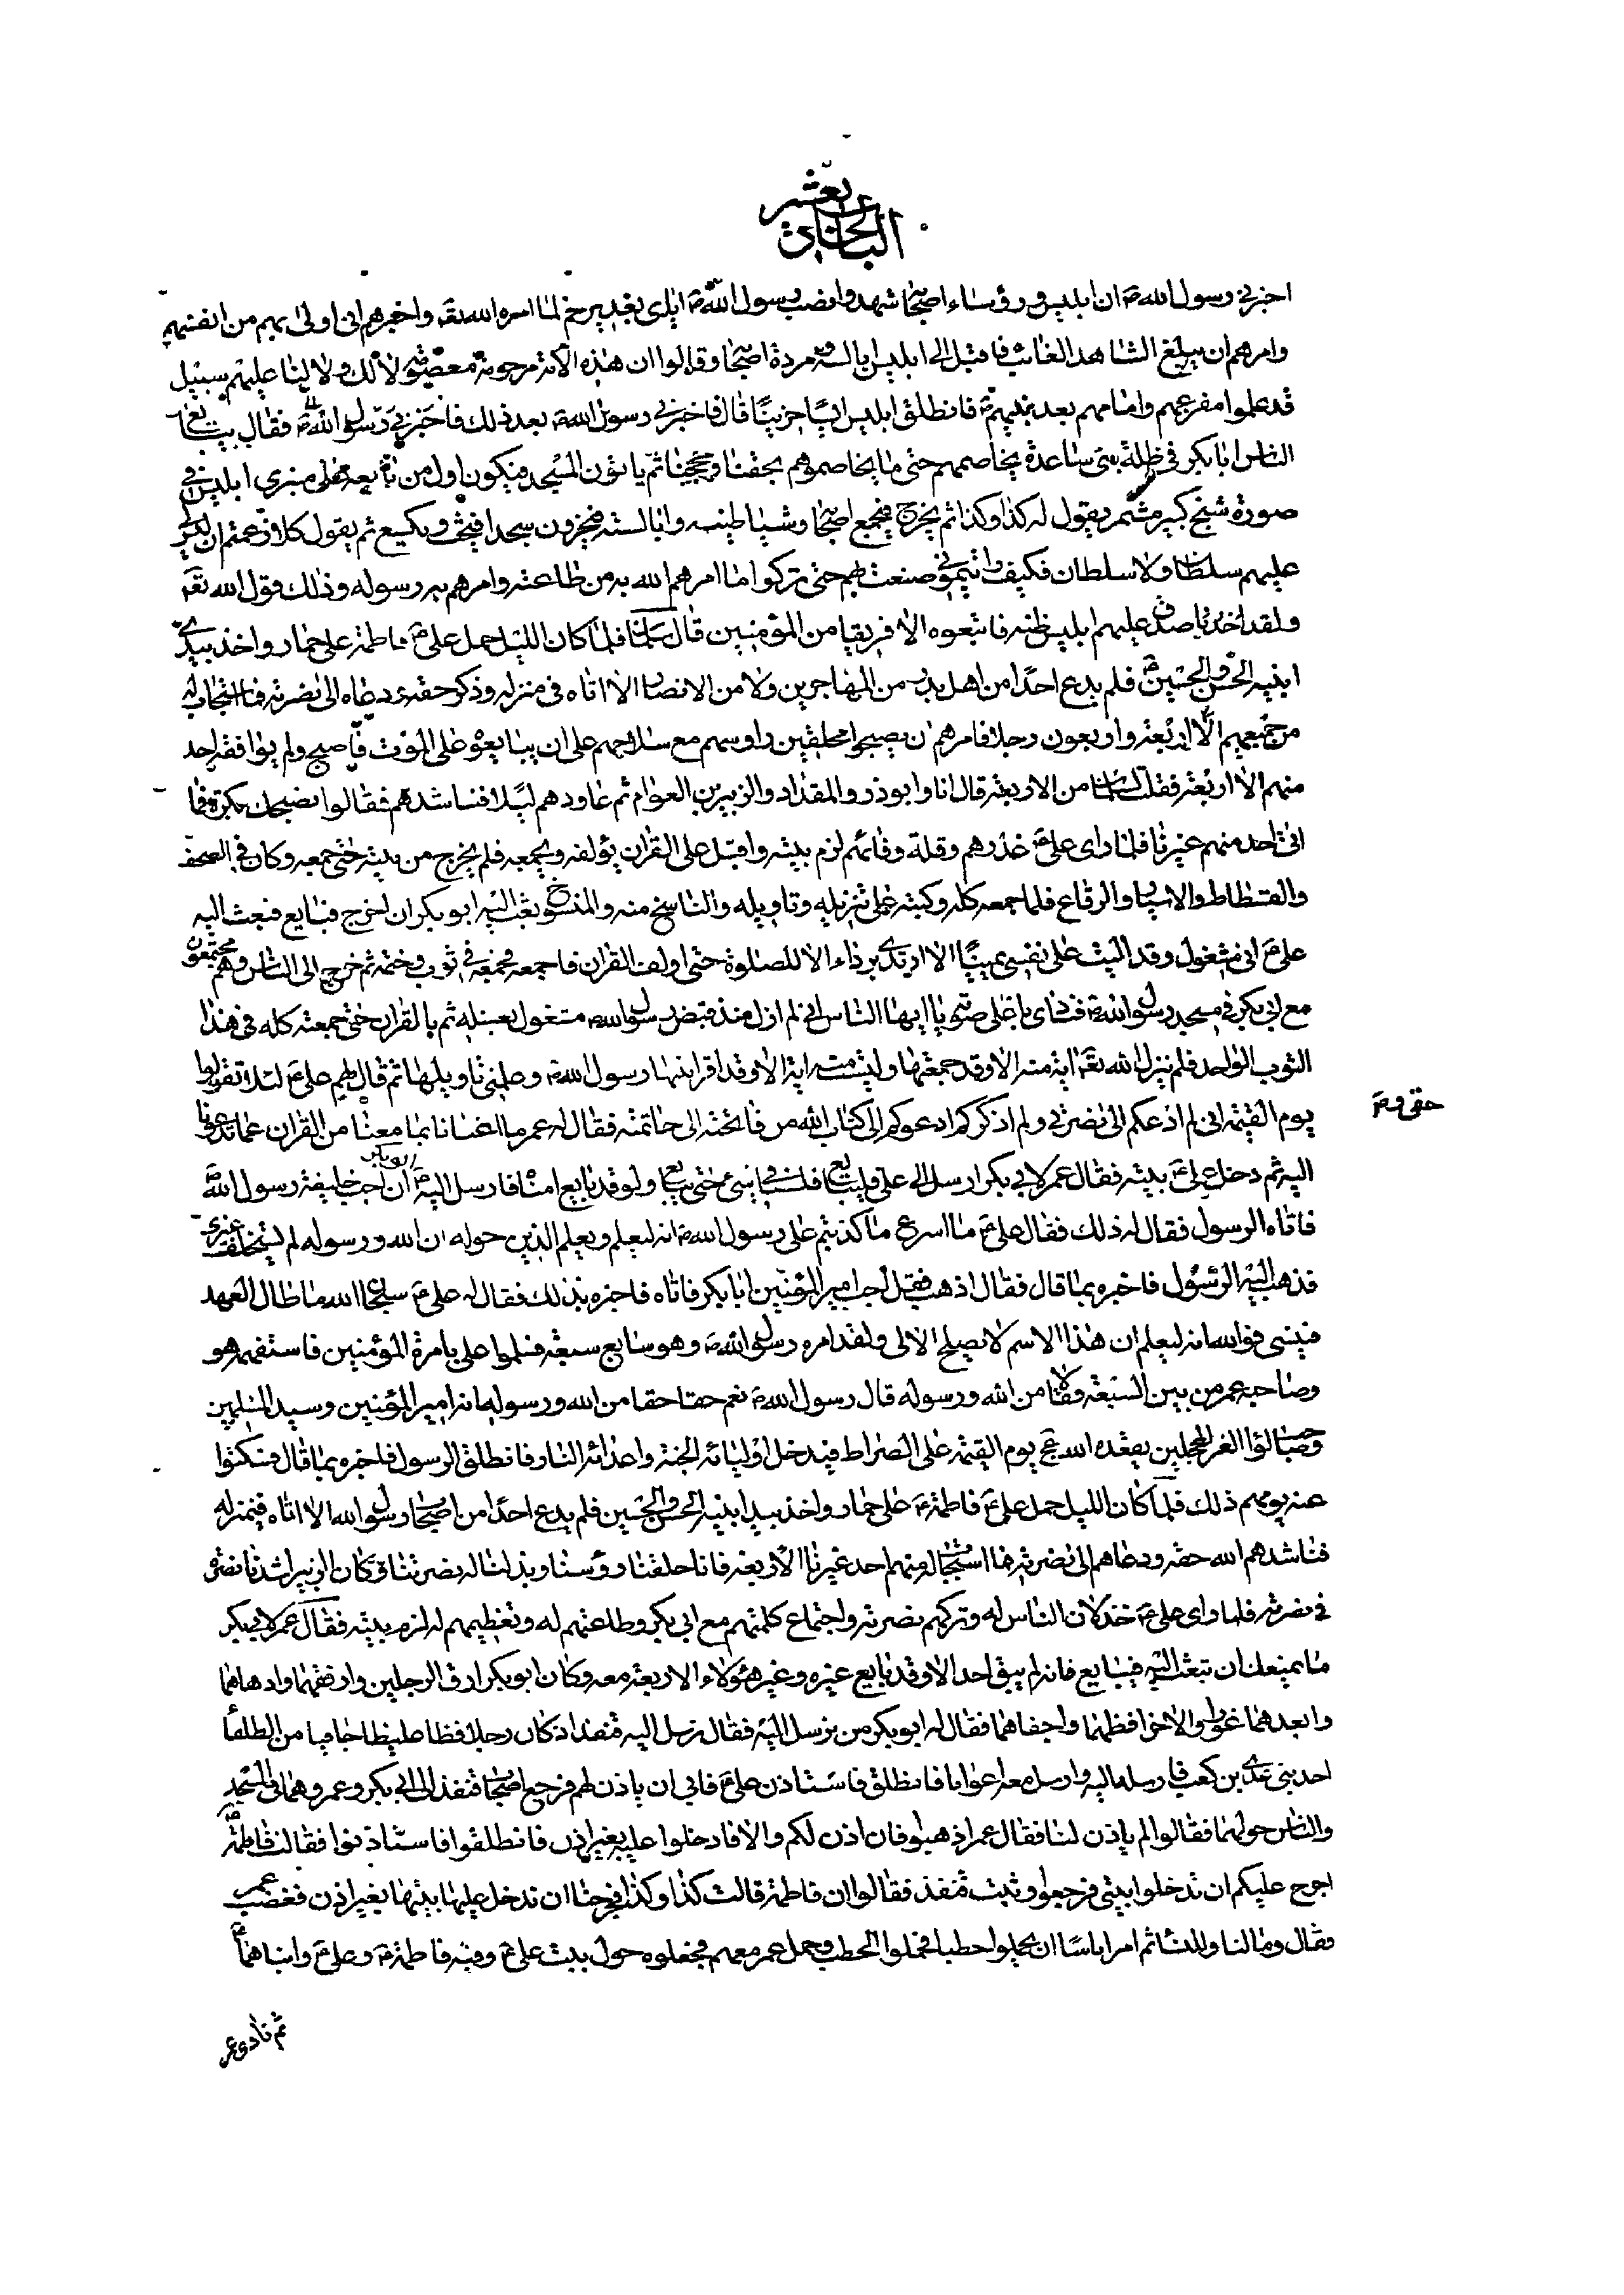 الباب الحادى عشر
اخبرنى رسول الله ص ان ابليس و رؤساء اصحابه شهدوا نصب رسول الله ص اياى بغدير خم لما امره الله تعا واخبرهم انى اولى بهم من انفسهم
وامرهم ان يبلغ الشاهد الغائب فاقبل الى ابليس ابالسته ومردة اصحابه وقالوا ان هذه الامة مرحومة معصومة لا لك ولا لنا عليهم سبيل
قد علموا مفزعهم وامامهم بعد نبيهم ص فانطلق ابليس آيسا حزينا قال فاخبرنى رسول الله ص بعد ذلك فاخبرنى رسول الله ص فقال يبايع
الناس ابا بكر فى ظلة بنى ساعدة بتخاصمهم حتى ما يخاصموهم بحقنا وحجتنا ثم ياتون المسجد فيكون اول من يبايعه على منبرى ابليس فى
صورة شيخ كبير مشمر يقول له كذا وكذا ثم يخرج فيجمع اصحابه وشياطينه وابالسته فيخرون سجدا فينخر ويكسع ثم يقول كلا زعمتم ان ليس لى
عليهم سلطانا ولا سلطان فكيف رايتمونى صنعت بهم حتى تركوا ما امرهم الله به من طاعته وامرهم به رسوله وذلك قول الله تعا
ولقد صدق عليهم ابليس ظنه فاتبعوه الا فريقا من المؤمنين قال سلمان فلما كان الليل حمل على ع فاطمة على حمار واخذ بيدى
ابنيه الحسن والحسين ع فلم يدع احدا من اهل بدر من المهاجرين ولا من الانصار الا اتاه فى منزله وذكر حقه ودعاه الى نصرته فما استجاب له
من جميعهم الا اربعة واربعون رجلا فامرهم ان يصبحوا محلقين رؤسهم مع سلاحهم على ان يبايعوه على الموت فاصبح ولم يوافقه احد
منهم الا اربعة فقلت لسلمان من الاربعة قال انا وابو ذر والمقداد والزبير بن العوام ثم عاودهم ليلا فناشدهم فقالوا نصبحك بكرة فما
اتى احد منهم غيرنا فلما راى على ع غدرهم وقلة وفائهم لزم بيته واقبل على القران يؤلفه ويجمعه فلم يخرج من بيته حتى جمعه وكان فى الصحف
والقطاط والاسيار والرقاع فلما جمعه كله وكتبه على تنزيله وتاويله والناسخ منه والمنسوخ بعث اليه ابو بكر ان اخرج فبايع فبعث اليه
على ع انى مشغول وقد اليت على نفسى يمينا الا ارتدى برداء الا للصلوة حتى اولف القران فاجمعه فجمعه فى ثوب وختمه ثم خرج الى الناس وهم مجتمعون
مع ابى بكر فى مسجد رسول الله ص فنادى باعلى صوته يا ايها الناس انى لم ازل منذ قبض رسول الله ص مشغول بغسله ثم بالقران حتى جمعته كله فى هذا
الثوب الواحد فلم ينزل الله تعا اية منه الا وقد جمعتها وليست منه اية الا وقد اقرانيها رسول الله ص وعلمنى تاويلها ثم قال لهم على ع لئلا تقولوا
يوم القيمة انى لم ادعكم الى نصرتى ولم اذكركم ادعوكم الى كتاب الله من فاتحته الى خاتمته فقال له عمر ما اغنانا بما معنا من القران عما تدعونا
حقى و صح
اليه ثم دخل على ع بيته فقال عمر لابى بكر ارسل الى على فليبايع فلسنا فى شئ حتى يبايع ولو قد بايع امناه فارسل اليه ابو بكر ان اجب خليفة رسول الله ص
فاتاه الرسول فقال له ذلك فقال على ع ما اسرع ما كذبتم على رسول الله ص انه ليعلم ويعلم الذين حوله ان الله ورسوله لم يستخلف غيرى
فذهب اليه الرسول فاخبره بما قال فقال اذهب فقل اجب امير المؤمنين ابا بكر فاتاه فاخبره بذلك فقال له على ع سبحان الله ما طال العهد
فينسى فوالله انه ليعلم ان هذا الاسم لا يصلح الا لى ولقد امره رسول الله ص وهو سابع سبعة فسلموا على بامرة المؤمنين فاستفهمه هو
وصاحبه عمر من بين السبعة فقالا من الله ورسوله قال رسول الله ص نعم حقا حقا من الله ورسوله انه امير المؤمنين وسيد المسلمين
وصاحب لواء الغر المحجلين يقعده الله عج يوم القيمة على الصراط فيدخل اوليائه الجنة واعدائه النار فانطلق الرسول فاخبره بما قال فسكتوا
عنه يومهم ذلك فلما كان الليل حمل على ع فاطمة ع على حمار واخذ بيد ابنيه الحسن والحسين فلم يدع احدا من اصحاب رسول الله الا اتاه فى منزله
فناشدهم الله حقه ودعاهم الى نصرته فما استجاب له منهم احد غيرنا الاربعة فانا حلقنا رؤسنا وبذلنا له نصرتنا وكان الزبير اشدنا نصرة
فى نصرته فلما راى على ع خذلان الناس له وتركهم نصرته واجتماع كلمتهم مع ابى بكر وطاعتهم له وتعظيمهم له لزم بيته فقال عمر لابى بكر
ما يمنعك ان تبعث اليه فيبايع فانه لم يبق احد الا وقد بايع غيره وغير هؤلاء الاربعة معه وكان ابو بكر ارق الرجلين وارفقهما وادهاهما
وابعدهما غورا والاخر افظهما واجفاهما فقال له ابو بكر من نرسل اليه فقال نرسل اليه قنفذا وكان رجلا فظا غليظا جافيا من الطلقاء
احد بنى عدى بن كعب فارسله اليه وارسل معه اعوانا فانطلق فاستاذن على ع فابى ان ياذن لهم فرجع اصحاب قنفذ الى ابى بكر وعمر وهما فى المسجد
والناس حولهما فقالوا لم ياذن لنا فقال عمر اذهبوا فان اذن لكم والا فادخلوا عليه بغير اذن فانطلقوا فاستاذنوا فقالت فاطمة ع
احرج عليكم ان تدخلوا بيتى فرجعوا وثبت قنفذ فقالوا ان فاطمة قالت كذا وكذا فحرجتنا ان ندخل عليها بيتها بغير اذن فغضب عمر
فقال وما لنا وللنساء ثم امر اناسا ان يحملوا حطبا فحملوا الحطب وحمل عمر معهم فجعلوه حول بيت على ع وفيه فاطمة ع وعلى ع وابناهما ع
ثم نادى عمر